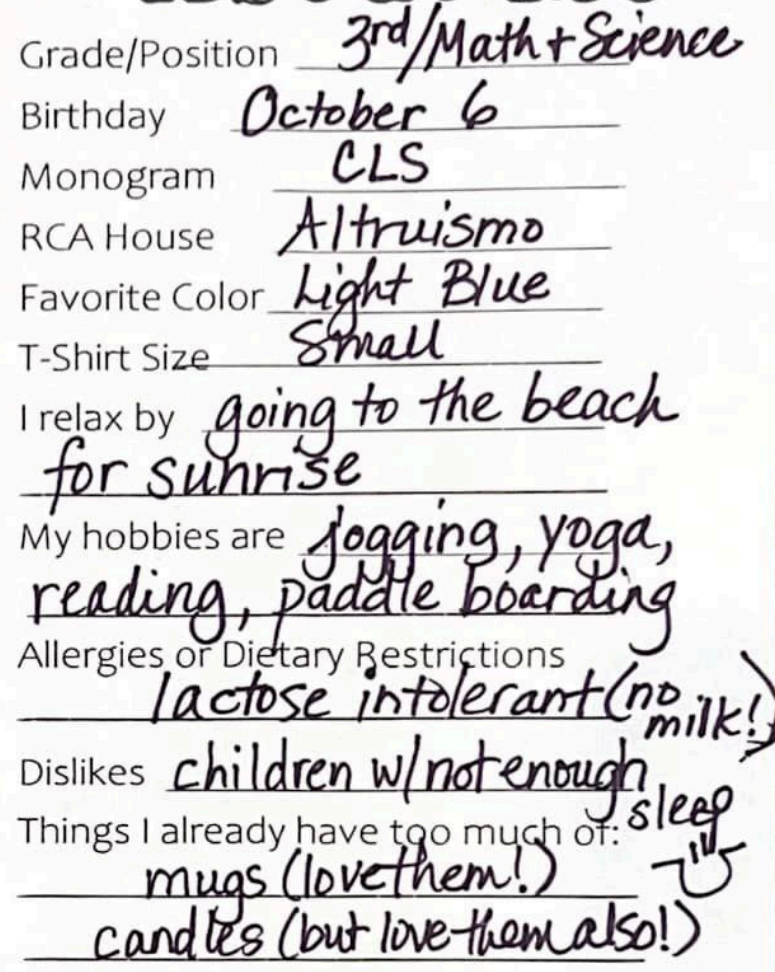 Grade/Position 3rd/Math + Science
Birthday October 6
Monogram CLS
RCA House Altruismo
Favorite Color Light Blue
T-Shirt Size Small
I relax by going to the beach
for sunrise
My hobbies are jogging, yoga,
reading, paddle boarding
Allergies or Dietary Restrictions
lactose intolerant (no
milk!)
Dislikes children w/ not enough
sleep
Things I already have too much of:
mugs (love them!)
candles (but love them also!)